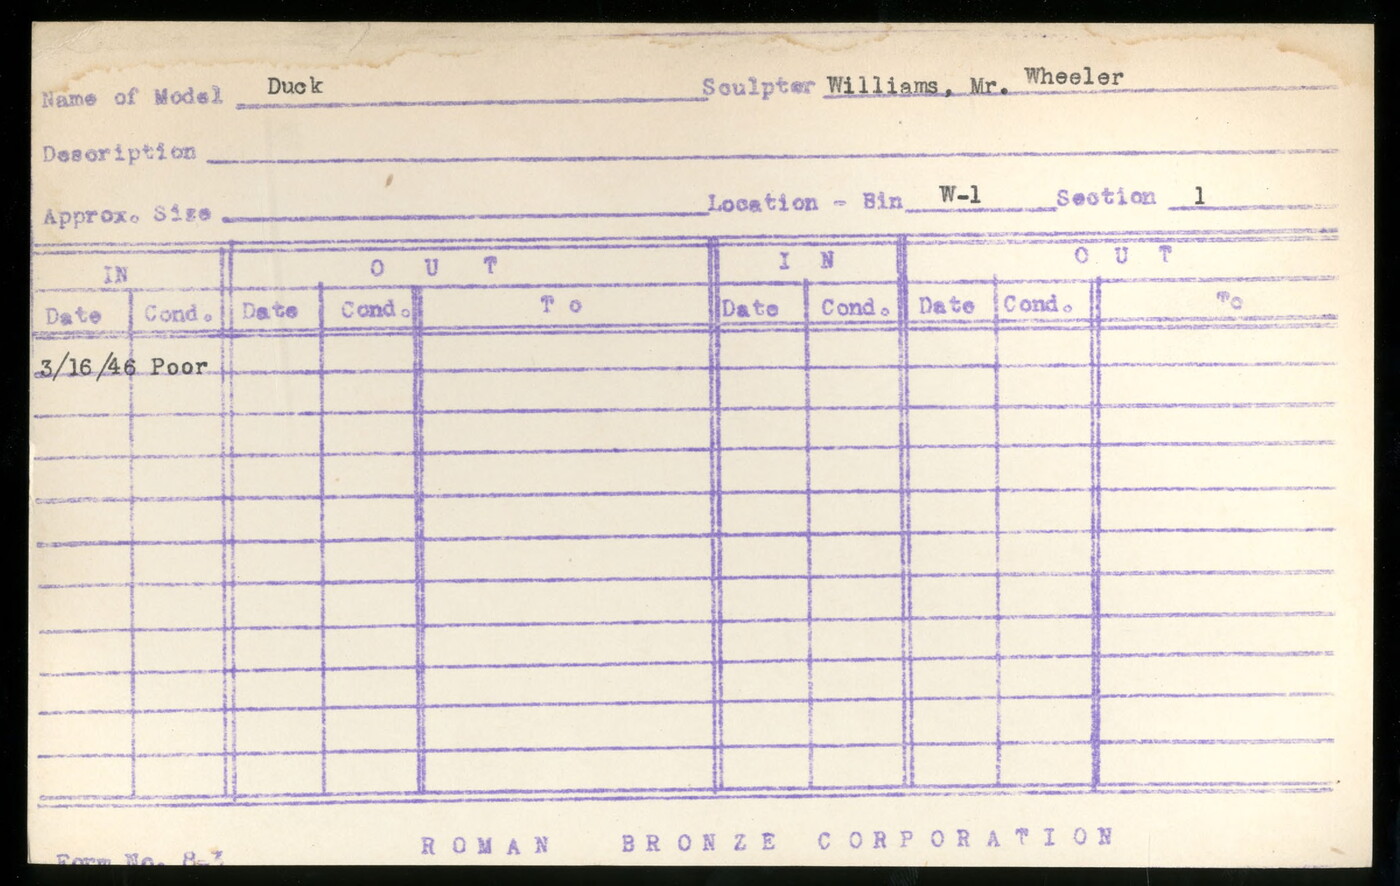 Name of Model Duck Sculpter Williams, Mr. Wheeler
Description
Approx. Size Location - Bin W-1 Section 1
IN O U T I N O U T
Date Cond. Date Cond. T o Date Cond. Date Cond. To
3/16/46 Poor
ROMAN BRONZE CORPORATION
Form No. 8-3